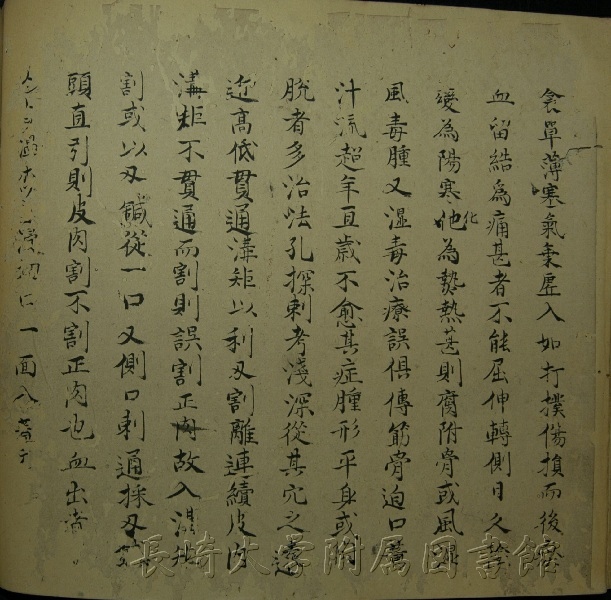 衾單薄寒氣乗虚入如打撲傷損而後瘀
血留結為痛甚者不能屈伸轉側日久陰
變為陽寒化為熱熱甚則腐附骨或風濕
風毒腫又湿毒治療誤俱傳筋骨迫口膿
汁流超年亘歳不愈其症腫形平身或附
脱者多治法孔探刺考淺深從其穴之遠
近高低貫通溝矩以利刃割離連續皮肉
溝矩不貫通而割則誤割正肉故入溝
割或以刃鍼從一口又側口刺通採刃
頭直引則皮肉割不割正肉也血出者
一面入
長崎大学附属図書館